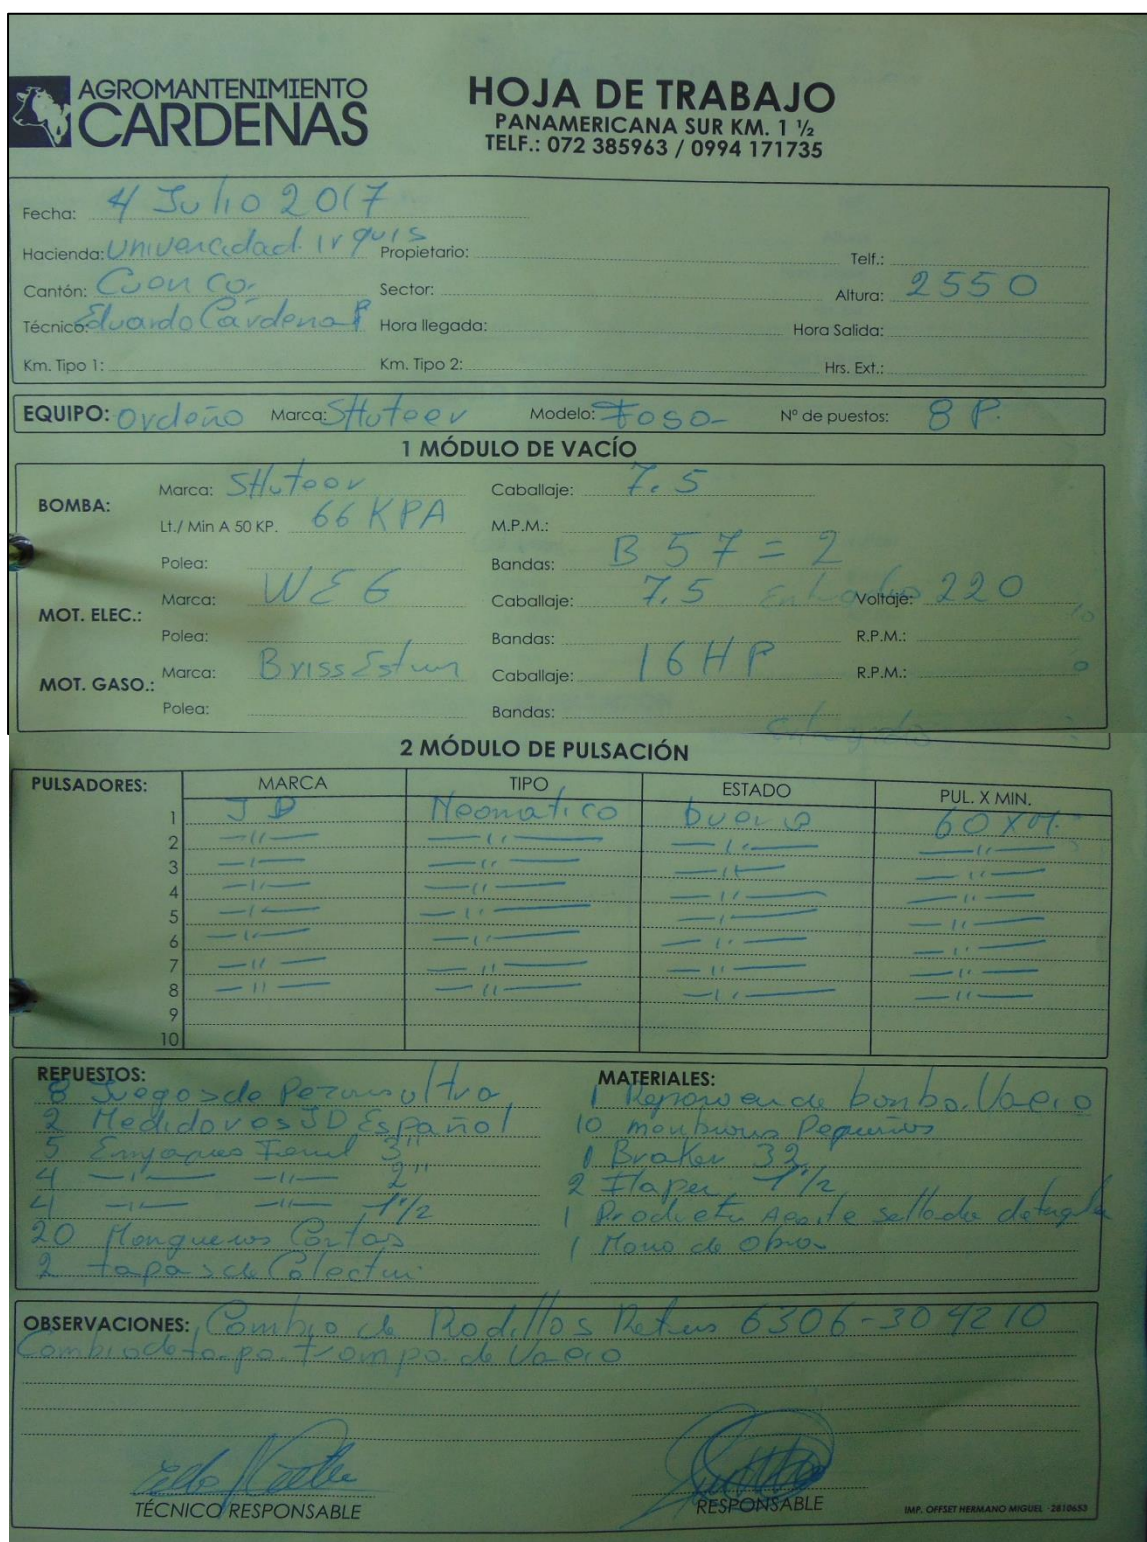 AGROMANTENIMIENTO
CARDENAS
HOJA DE TRABAJO
PANAMERICANA SUR KM. 1 ½
TELF.: 072 385963 / 0994 171735
Fecha: 4 Julio 2017
Hacienda: Univercidad Irquis Propietario: Telf.:
Cantón: Cuenca Sector: Altura: 2550
Técnico: Eduardo Cárdenas P Hora llegada: Hora Salida:
Km. Tipo 1: Km. Tipo 2: Hrs. Ext.:
EQUIPO: Ordeño Marca: SHuteer Modelo: Foso Nº de puestos: 8 P.
1 MÓDULO DE VACÍO
BOMBA: Marca: SHuteer Caballaje: 7.5
Lt./ Min A 50 KP. 66 KPA M.P.M.:
Polea: Bandas: B 57 = 2
MOT. ELEC.: Marca: WEG Caballaje: 7.5 Voltaje: 220
Polea: Bandas: R.P.M.:
MOT. GASO.: Marca: Briss Estun Caballaje: 16 HP R.P.M.:
Polea: Bandas:
2 MÓDULO DE PULSACIÓN
PULSADORES: MARCA TIPO ESTADO PUL. X MIN.
1 JD Neomatico bueno 60 X M.
2 —"— —"— —"— —"—
3 —"— —"— —"— —"—
4 —"— —"— —"— —"—
5 —"— —"— —"— —"—
6 —"— —"— —"— —"—
7 —"— —"— —"— —"—
8 —"— —"— —"— —"—
9
10
REPUESTOS:
8 Juegos de
2 Medidores JD Español
5 Empaques 3"
4 —"— —"— 2"
4 —"— —"— 1"/2
20 Mangueras Cortas
2 tapas de
MATERIALES:
1 de bomba Vacio
10 Pequeños
1 Braker 32
2 1"/2
1 Aceite
1 Mano de Obra
OBSERVACIONES: Cambio de Rodillos 6306-304210
Cambio de tapa trampa de Vacio
TÉCNICO RESPONSABLE
RESPONSABLE
IMP. OFFSET HERMANO MIGUEL · 2810653